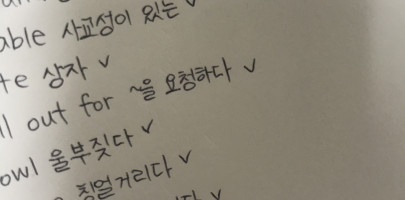 able 사교성이 있는 ✓
te 상자 ✓
ll out for ~을 요청하다 ✓
owl 울부짖다 ✓
칭얼거리다 ✓